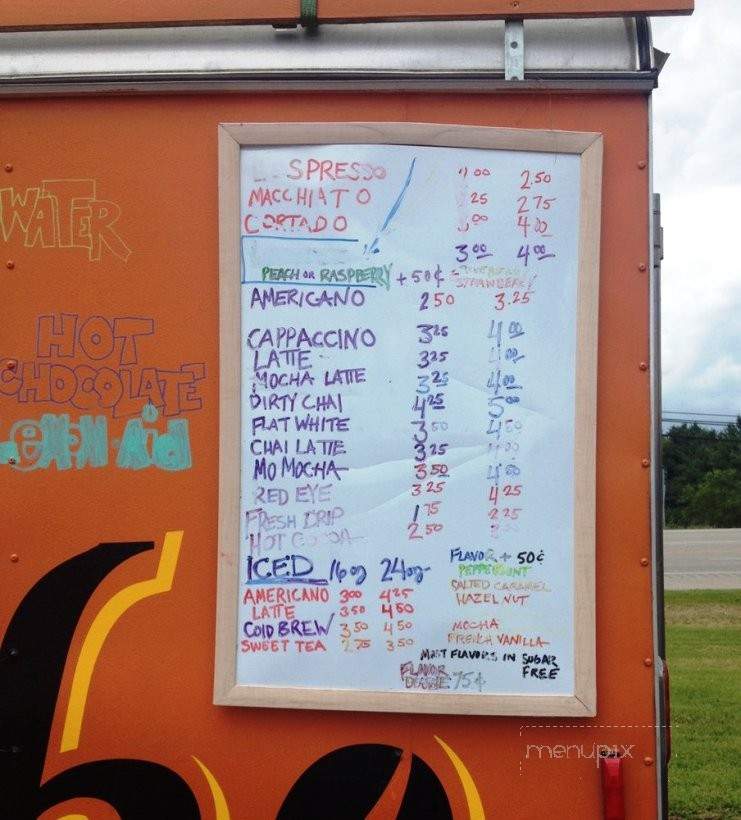 SPRESSO 2.50
MACCHIATO 25 2.75
CORTADO 4.00
3.00 4.00
PEACH OR RASPBERRY + 50¢ STRAWBERRY
AMERICANO 2.50 3.25
CAPPACCINO 3.25 4.00
LATTE 3.25
MOCHA LATTE 3.25 4.00
DIRTY CHAI 4.25 5.00
FLAT WHITE 3.50 4.50
CHAI LATTE 3.25
MO MOCHA 3.50
RED EYE 3.25 4.25
FRESH DRIP 1.75 2.25
HOT COCOA 2.50
ICED 16oz 24oz
AMERICANO 3.00 4.25
LATTE 3.50 4.50
COLD BREW 3.50 4.50
SWEET TEA 2.75 3.50
FLAVOR + 50¢
PEPPERMINT
SALTED CARAMEL
HAZELNUT
MOCHA
FRENCH VANILLA
MOST FLAVORS IN SUGAR
FREE
FLAVOR
DOUBLE 75¢
WATER
HOT
CHOCOLATE
LEMON-AID
menupix